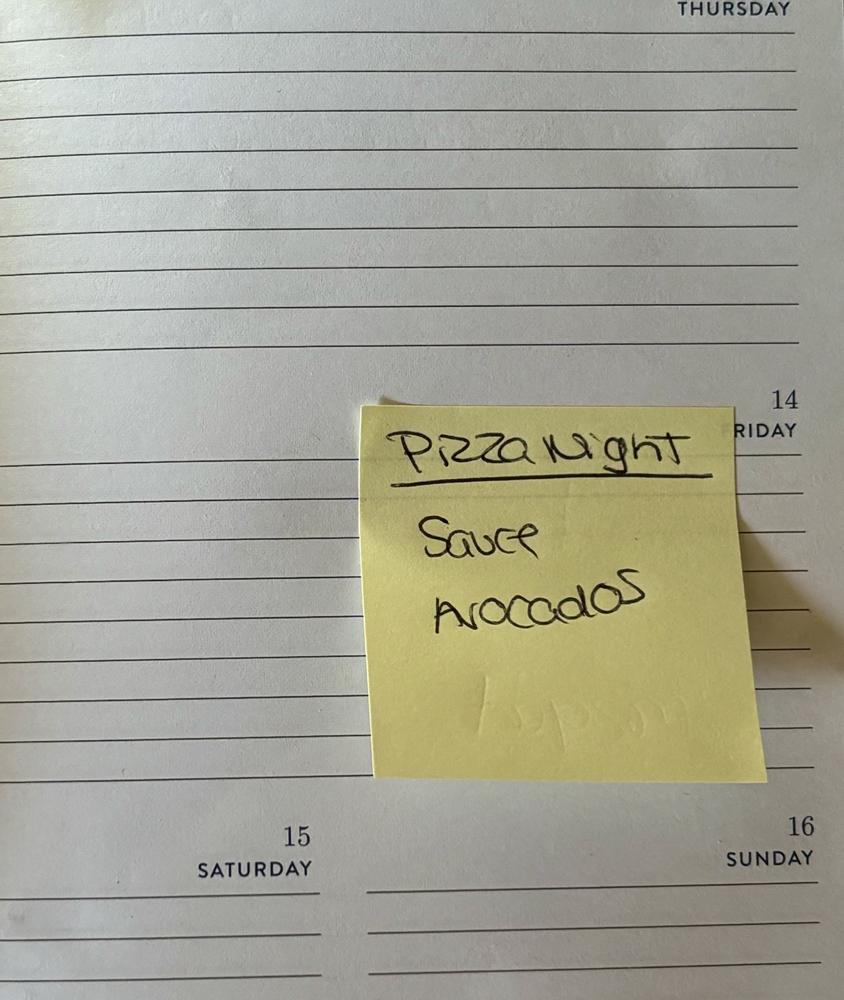 THURSDAY
14
RIDAY
Pizza Night
Sauce
Avocados
15
SATURDAY
16
SUNDAY